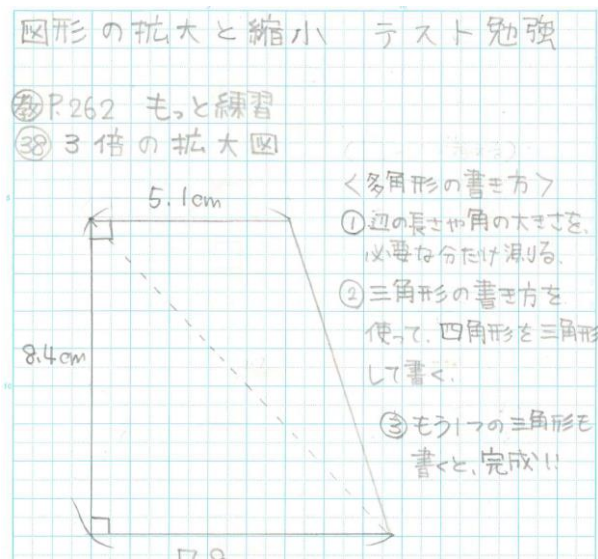 図形の拡大と縮小 テスト勉強
教P.262 もっと練習
38 3倍の拡大図
5.1cm
8.4cm
<多角形の書き方>
①辺の長さや角の大きさを、
必要な分だけ測る。
②三角形の書き方を
使って、四角形を三角形
して書く。
③もう1つの三角形も
書くと、完成!!